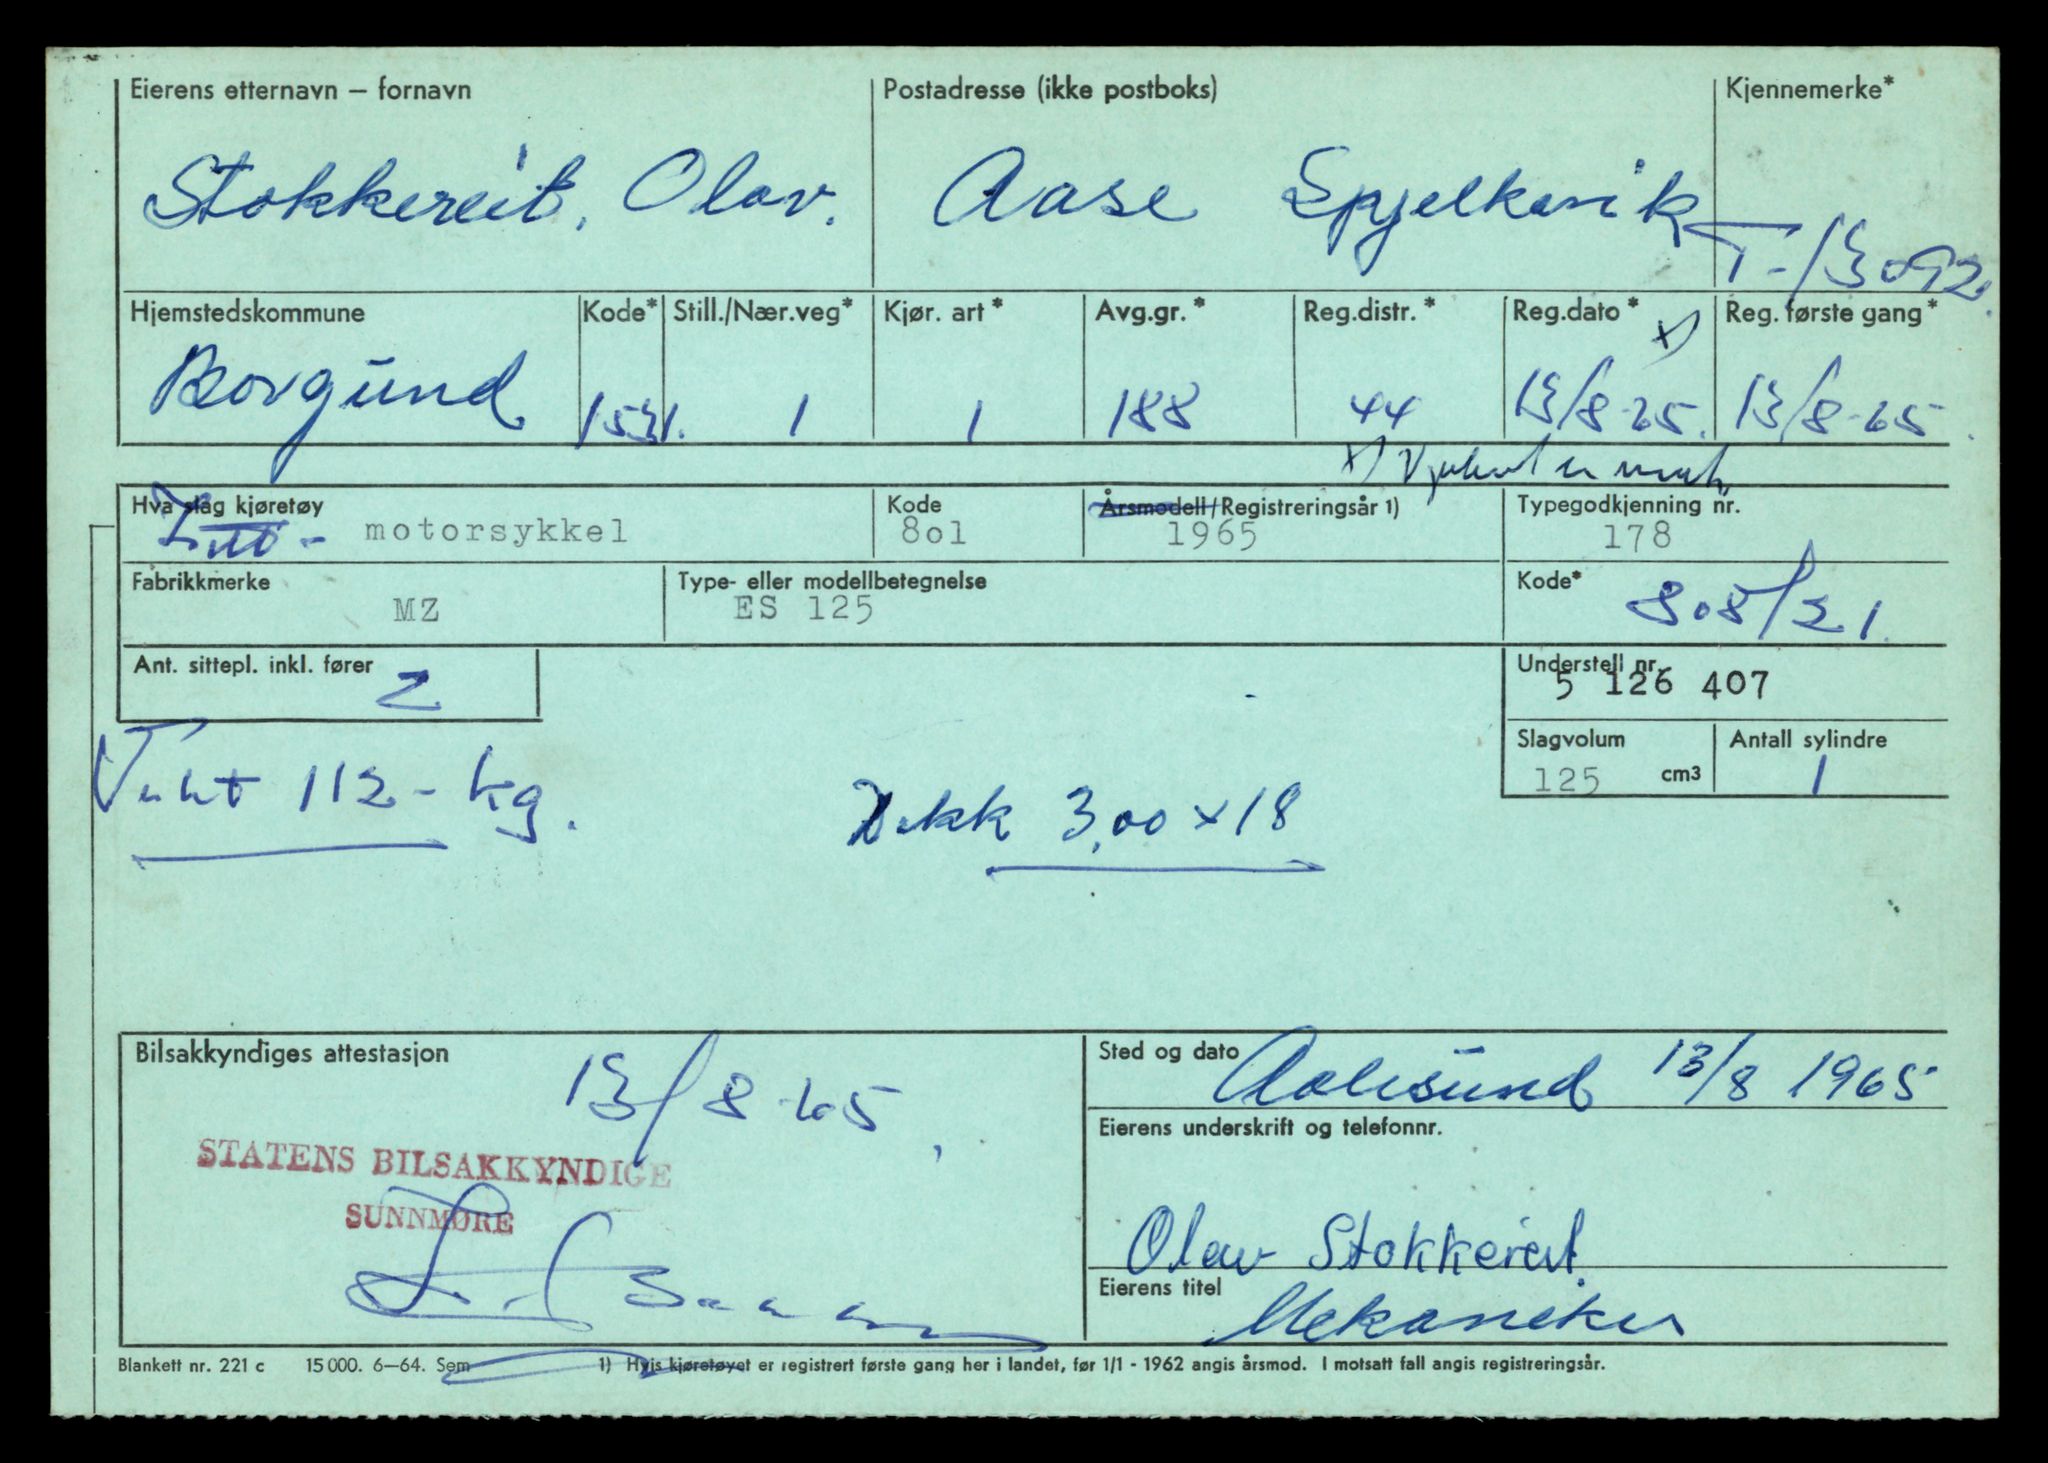 Eierens etternavn – fornavn Postadresse (ikke postboks) Kjennemerke*
Stokkereit, Olav. Aase Spjelkavik T-13092.
Hjemstedskommune Kode* Still./Nær.veg* Kjør. art* Avg.gr.* Reg.distr.* Reg.dato* x) Reg. første gang*
Borgund 1531. 1 1 188 44 13/8-65. 13/8-65.
x)
Hva slag kjøretøy Kode Årsmodell/Registreringsår 1) Typegodkjenning nr.
motorsykkel 8o1 1965 178
Fabrikkmerke Type- eller modellbetegnelse Kode*
MZ ES 125 808/21.
Ant. sittepl. inkl. fører 2 Understell nr.
5 126 407
Slagvolum Antall sylindre
125 cm3 1
Vekt 112- kg. Dekk 3,00 x 18
Bilsakkyndiges attestasjon Sted og dato
13/8-65. Aalesund 13/8 1965
Eierens underskrift og telefonnr.
STATENS BILSAKKYNDIGE
SUNNMØRE
Olav Stokkereit.
Eierens titel
Mekaniker
Blankett nr. 221 c 15 000. 6–64. Sem 1) Hvis kjøretøyet er registrert første gang her i landet, før 1/1 - 1962 angis årsmod. I motsatt fall angis registreringsår.